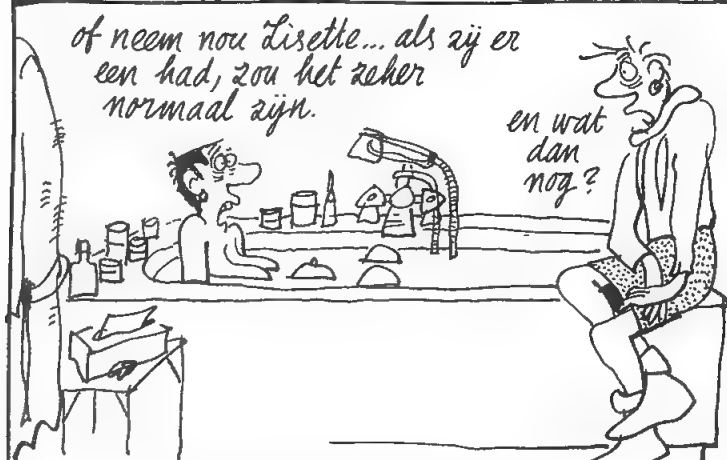 of neem nou Lisette... als zij er
een had, zou het zeker
normaal zijn.
en wat
dan
nog?